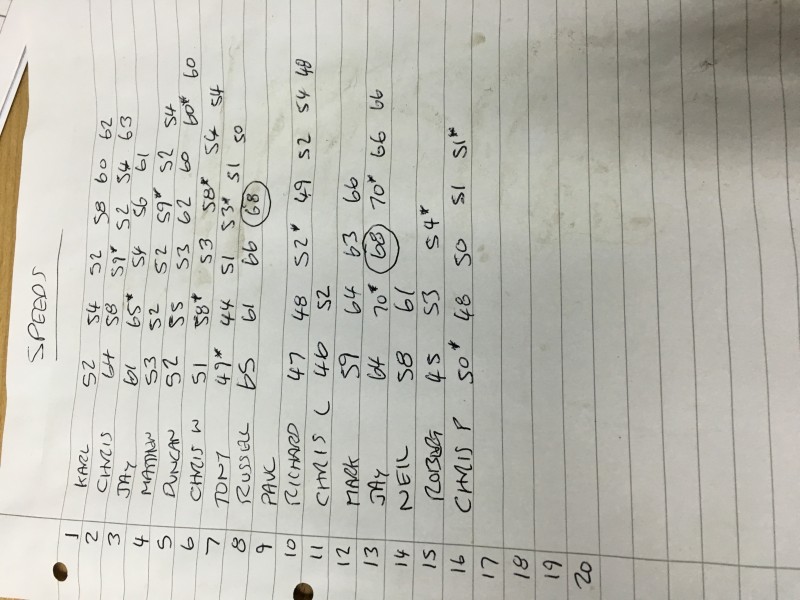 SPEEDS
1 KARL 52 54 52 58 60 62
2 CHRIS 64 58 59* 52 54 63
3 JAY 61 65* 54 56 61
4 MATTHEW 53 52 52 59* 52 54
5 DUNCAN 52 55 53 62 60 60* 60
6 CHRIS W 51 58* 53 58* 54 54
7 TONY 49* 44 51 53* 51 50
8 RUSSELL 65 61 66 68
9 PAUL
10 RICHARD 47 48 52* 49 52 54 48
11 CHRIS L 46 52
12 MARK 59 64 63 66
13 JAY 64 70* 68 70* 66 66
14 NEIL 58 61
15 45 53 54*
16 CHRIS P 50* 48 50 51 51*
17
18
19
20